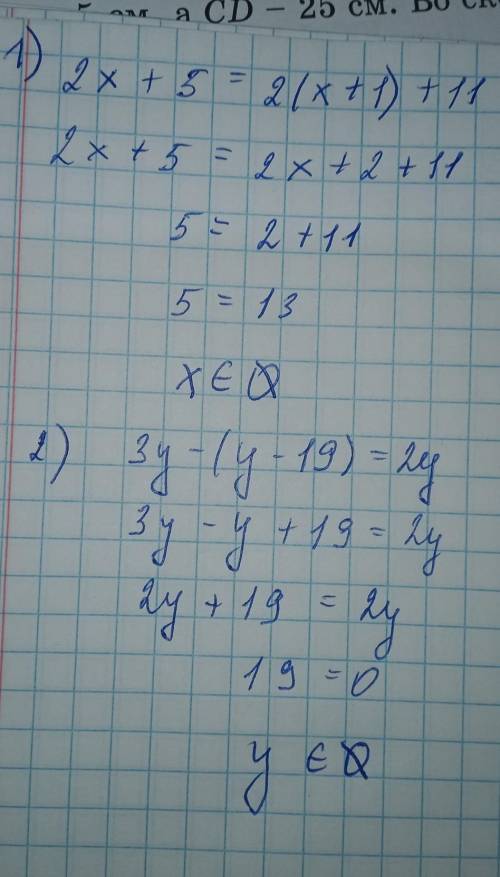 а CD – 25 см. Во
1) 2x + 5 = 2(x + 1) + 11
2x + 5 = 2x + 2 + 11
5 = 2 + 11
5 = 13
x ∈ ∅
2) 3y - (y - 19) = 2y
3y - y + 19 = 2y
2y + 19 = 2y
19 = 0
y ∈ ∅